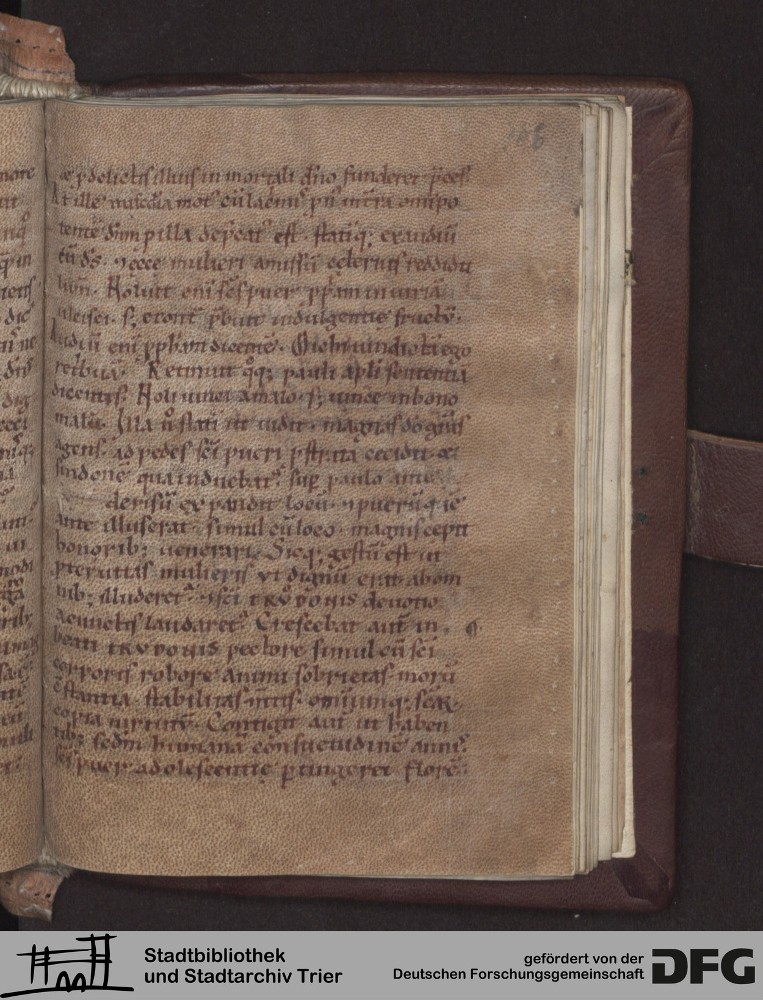 168
p delictis illius in mortali dño funderet p̄ces
At ille mot cū lacrimis
tentē dñm p illa dep̄cat̾ est. statiq; exaudiū
tū ds. ecce mulieri amissū celerius reddidit
lum̄. Noluit eni scs puer ppam iniuriā
ulcisci. s; p̄buit indulgentie fructū.
Audiū eni ppham dicentē. Michi uindictā ego
retbuā. Retinuit qq; pauli apli sententiā
dicentis. Noli uinci a malo. s; uince in bono
malū. Illa ū stati ut uidit. magnas dō grās
agens. ad pedes sci pueri pstrata cecidit &
sindonē qua induebat̾. sup paulo ante
derisū expandit locū. puerū quē
ante illuserat. simul cū loco. magnis cepit
honorib; uenerari. Sicq; gestū est ut
pteruitas mulieris ut dignū erat ab om
nib; illuderet̾. sci TRVDONIS deuotio
a cunctis laudaret̾. Crescebat aut̄ in
beati TRVDONIS pectore simul cū sci
corporis robore animi sobrietas. morū
c̄stantia. stabilitas m̄tis. omiumq; scar
copia uirtutū. Contigit aut̄ ut haben
tib; scdm humanā consuetudinē annis
scs puer adolescentie ptingeret florē.
Stadtbibliothek
und Stadtarchiv Trier
gefördert von der
Deutschen Forschungsgemeinschaft
DFG